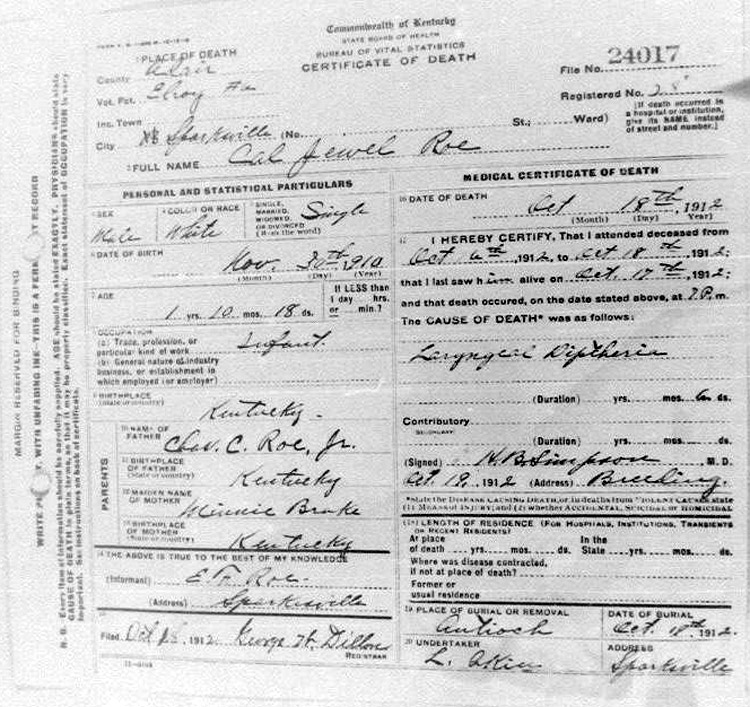 Commonwealth of Kentucky
STATE BOARD OF HEALTH
BUREAU OF VITAL STATISTICS
CERTIFICATE OF DEATH
1 PLACE OF DEATH
County Adair
Vot. Pct. Elroy
Inc. Town
City Sparksville (No. St.; Ward)
File No. 24017
Registered No. 28
[If death occurred in a hospital or institution, give its NAME instead of street and number.]
2 FULL NAME Cal Jewel Roe
PERSONAL AND STATISTICAL PARTICULARS
3 SEX Male
4 COLOR OR RACE White
5 SINGLE, MARRIED, WIDOWED, OR DIVORCED (Write the word) Single
6 DATE OF BIRTH Nov. 30th, 1910
(Month) (Day) (Year)
7 AGE 1 yrs. 10 mos. 18 ds.
If LESS than 1 day hrs. or min.?
8 OCCUPATION
(a) Trade, profession, or particular kind of work Infant.
(b) General nature of industry business, or establishment in which employed (or employer)
9 BIRTHPLACE (State or country) Kentucky
PARENTS
10 NAME OF FATHER Chas. C. Roe, Jr.
11 BIRTHPLACE OF FATHER (State or country) Kentucky
12 MAIDEN NAME OF MOTHER Minnie Brake
13 BIRTHPLACE OF MOTHER (State or country) Kentucky
14 THE ABOVE IS TRUE TO THE BEST OF MY KNOWLEDGE
(Informant) Roe
(Address) Sparksville
15
Filed Oct 1912. George H. Dillon
REGISTRAR
MEDICAL CERTIFICATE OF DEATH
16 DATE OF DEATH Oct 18th, 1912
(Month) (Day) Year)
17 I HEREBY CERTIFY, That I attended deceased from
Oct 6th, 1912, to Oct 18th, 1912;
that I last saw him alive on Oct. 17th, 1912;
and that death occured, on the date stated above, at 7 P. m.
The CAUSE OF DEATH* was as follows:
Laryngeal Diptheria
(Duration) yrs. mos. 6 ds.
Contributory
SECONDARY
(Duration) yrs. mos. ds.
(Signed) H. B. Simpson M. D.
Oct. 19, 1912 (Address) Breeding.
*State the DISEASE CAUSING DEATH, or in deaths from VIOLENT CAUSES state
(1) MEANS OF INJURY; and (2) whether ACCIDENTAL, SUICIDAL or HOMICIDAL
(18) LENGTH OF RESIDENCE (FOR HOSPITALS, INSTITUTIONS, TRANSIENTS
OR RECENT RESIDENTS)
At place of death yrs. mos. ds. In the State yrs. mos. ds.
Where was disease contracted,
if not at place of death?
Former or
usual residence
19 PLACE OF BURIAL OR REMOVAL Antioch
DATE OF BURIAL Oct. 1912.
20 UNDERTAKER L. Akin
ADDRESS Sparksville
MARGIN RESERVED FOR BINDING
N. B. Every item of information should be carefully supplied. AGE should be stated EXACTLY. PHYSICIANS should state
CAUSE OF DEATH in plain terms, so that it may be properly classified. Exact statement of OCCUPATION is very
important. See instructions on back of certificate.